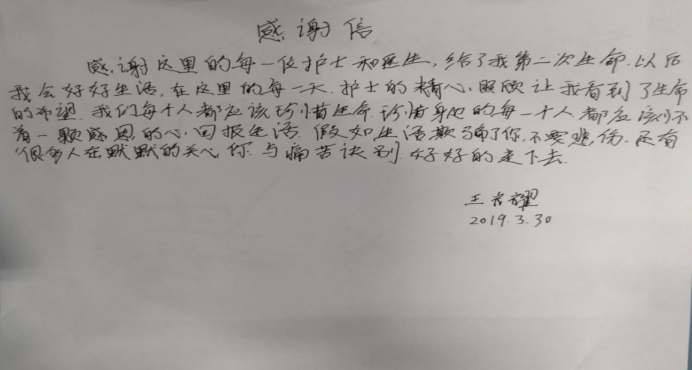 感谢信
感谢这里的每一位护士和医生,给了我第二次生命.以后
我会好好生活,在这里的每一天.护士的精心照顾让我看到了生命
的希望.我们每个人都应该珍惜生命.珍惜身边的每一个人都应该
有一颗感恩的心.回报生活.假如生活欺骗了你,不要悲伤.还有
很多人在默默的关心你.与痛苦诀别.好好的走下去.
王 耀
2019.3.30